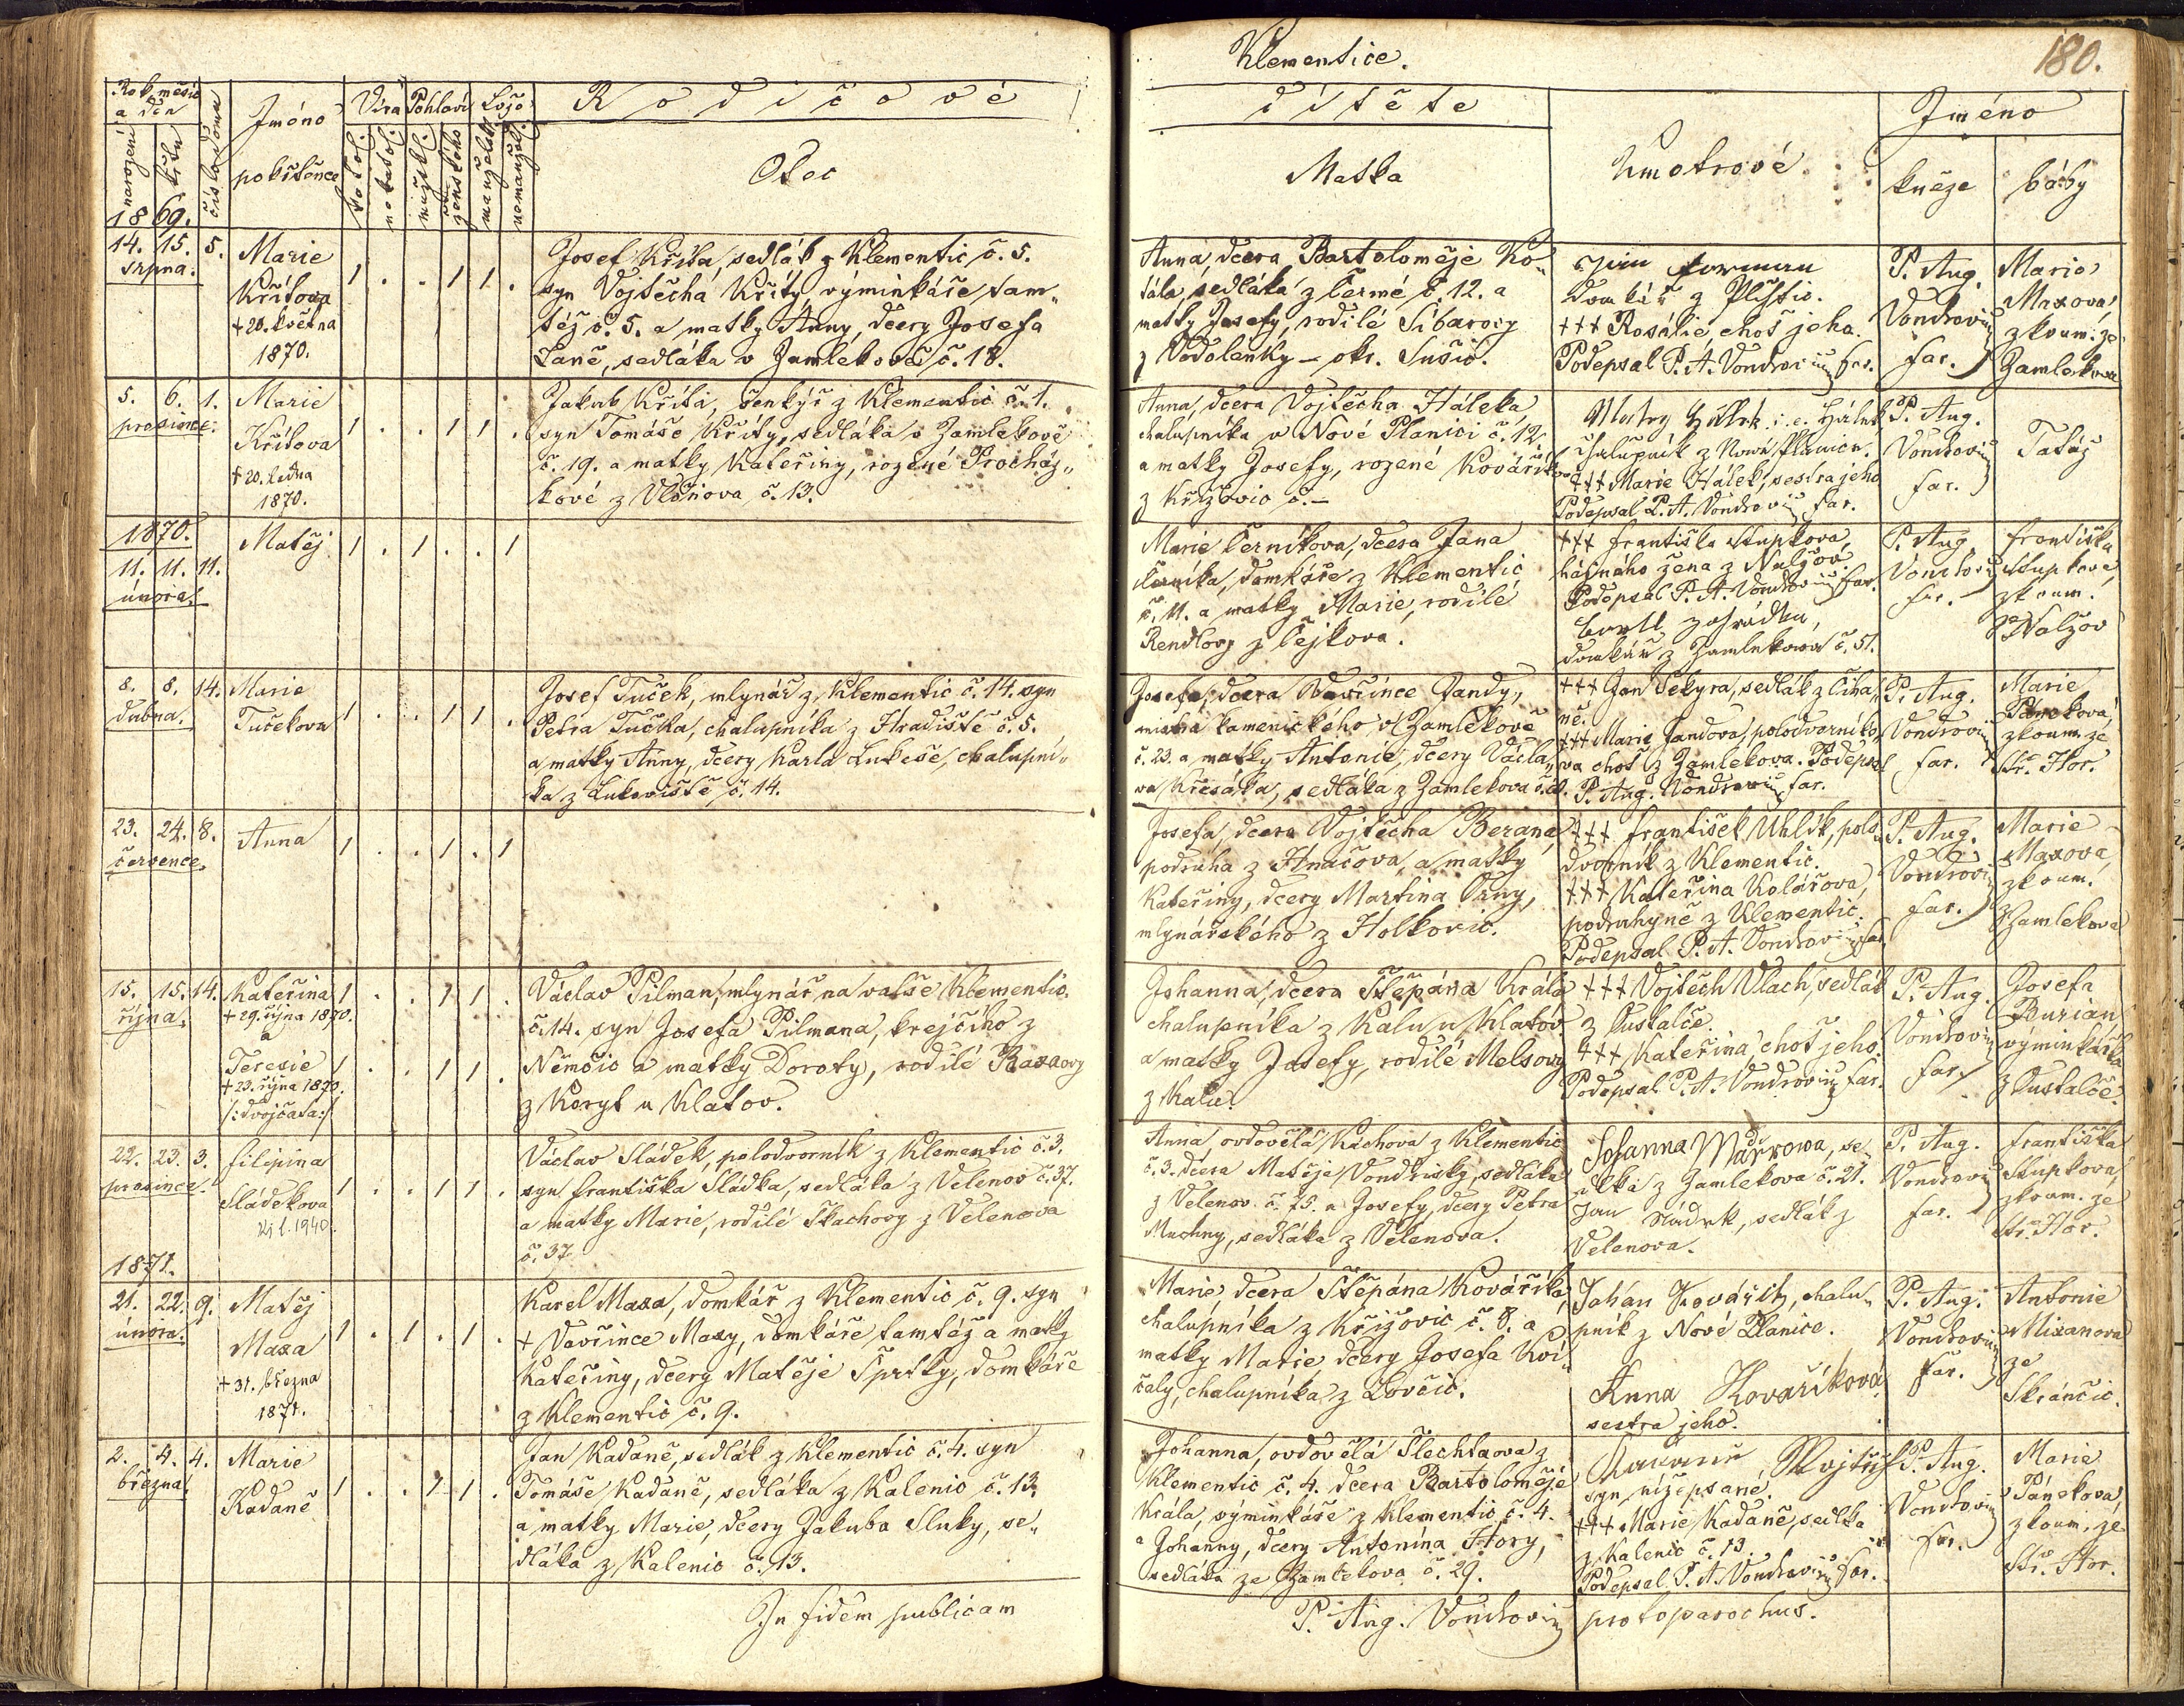 Klementice.
180.
Rok, měsíc
a den
narození
křtu
číslo domu
Jméno
pokřtěnce
Víra
katol.
nekatol.
Pohlaví
mužské
ženského
Lože
manželské
nemanžel.
Rodičové
dítěte
Otec
Matka
Kmotrové
Jméno
kněze
báby
1869.
14. 15. 5.
srpna.
Marie
Křítova
+ 20. května
1870.
1 . . 1 1 .
Josef Kříta, sedlák z Klementic č. 5.
syn Vojtěcha Kříty, výminkáře tam„
též č. 5. a matky Anny, dcery Josefa
Daně, sedláka v Zamlekově č. 18.
Anna, dcera Bartoloměje Ko„
tála, sedláka z Čermé č. 12. a
matky Josefy, rodilé Síbarovy
z Vodolenky – okr. Sušic.
Jan Forman
domkář z Plíštic.
+++ Rosálie, choť jeho.
Podepsal P. A. Vondrovic far.
P. Aug.
Vondrovic
far.
Marie
Maxova,
zkoum. ze
Zamlekova
5. 6. 1.
prosince.
Marie
Křítova
+ 20. ledna
1870.
1 . . 1 1 .
Jakub Kříta, šenkýř z Klementic č. 1.
syn Tomáše Kříty, sedláka v Zamlekově
č. 19. a matky Kateřiny, rozené Procház„
kové z Vlčnova č. 13.
Anna, dcera Vojtěcha Háleka,
chalupníka v Nové Planici č. 12.
a matky Josefy, rozené Kovaříkov
z Křížovic č. –
i. e. Hálek
chalupník z Nové Planice.
+++ Marie Hálek, sestra jeho
Podepsal P. A. Vondrovic far.
P. Aug.
Vondrovic
far.
Tatáž
1870.
11. 11. 11.
února.
Matěj
1 . 1 . . 1
Marie Černíkova, dcera Jana
Černíka, domkáře z Klementic
č. 11. a matky Marie, rodilé
Rendlovy z Čejkova.
+++ Františka Stupkova,
hájného žena z Nalžov.
Podepsal P. A. Vondrovic far.
Karel Zahrádka,
domkář z Zamlekova č. 51.
P. Aug.
Vondrovic
far.
Františka
Stupkové,
zkoum.
z Nalžov
8. 8. 14.
dubna.
Marie
Tučekova
1 . . 1 1 .
Josef Tuček, mlynář z Klementic č. 14. syn
Petra Tučka, chalupníka z Hradiště č. 5.
a matky Anny, dcery Karla Lukeše, chalupní„
ka z Lukoviště č. 14.
Josefa, dcera Vavřince Jandy,
mistra kamenického v Zamlekově
č. 23. a matky Antonie, dcery Václa„
va Křesáka, sedláka z Zamlekova
+++ Jan Sekyra, sedlák z Číha„
ně.
+++ Marie Jandova, polodvorníko„
va choť z Zamlekova. Podepsal
P. Aug. Vondrovic far.
P. Aug.
Vondrovic
far.
Marie
Pánekova,
zkoum. ze
Stř. Hor.
23. 24. 8.
července.
Anna
1 . . 1 . 1
Josefa, dcera Vojtěcha Berana,
podruha z Hnačova, a matky
Kateřiny, dcery Martina Ouny,
mlynářského z Holkovic.
+++ František Uhlík, polo„
dvorník z Klementic.
+++ Kateřina Kolářova,
podruhyně z Klementic.
Podepsal P. A. Vondrovic far.
P. Aug.
Vondrovic
far.
Marie
Maxová,
zkoum.
z Zamlekova
15. 15. 14.
října.
Kateřina
+ 29. října 1870.
a
Teresie
+ 23. října 1870.
/: dvojčata :/
1 . . 1 1 .
1 . . 1 1 .
Václav Pilman, mlynář na valše Klementic.
č. 14. syn Josefa Pilmana, krejčího z
Němčic a matky Doroty, rodilé Baxaovy
z Koryt u Klatov.
Johanna, dcera Štěpána Krále
chalupníka z Kalu u Klatov
a matky Josefy, rodilé Melsovy
z Kalu.
+++ Vojtěch Vlach, sedlák
z Oustalče.
+++ Kateřina choť jeho.
Podepsal P. A. Vondrovic far.
P. Aug.
Vondrovic
far.
Josefa
Burian
výminkářka
z Oustalče.
22. 23. 3.
prosince.
Filipina
Sládekova
1940.
1 . . 1 1 .
Václav Sládek, polodvorník z Klementic č. 3.
syn Františka Sládka, sedláka z Velenov č. 37.
a matky Marie, rodilé Škachovy z Velenova
č. 37
Anna ovdovělá Kuchova z Klementic
č. 3. dcera Matěje Vondřisky, sedláka
z Velenov. č. 15. a Josefy, dcery Petra
Muchny, sedláka z Velenova.
Johanna se„
lka z Zamlekova č. 21.
Jan Sládek, sedlák z
Velenova.
P. Aug.
Vondrovic
far.
Františka
Stupkova,
zkoum. ze
Stř. Hor.
1871.
21. 22. 9.
února.
Matěj
Maxa
+ 31. března
1871.
1 . 1 . 1 .
Karel Maxa, domkář z Klementic č. 9. syn
+ Vavřince Maxy, domkáře tamtéž a matky
Kateřiny, dcery Matěje Šprtky, domkáře
z Klementic č. 9.
Marie, dcera Štěpána Kovaříka,
chalupníka z Křížovic č. 8. a
matky Marie, dcery Josefa Kví„
čaly, chalupníka z Lovčic.
Johán Kovářík, chalu„
pník z Nové Planice.
Anna Kovaříková
sestra jeho.
P. Aug.
Vondrovic
far.
Antonie
Mixanova
ze
Skránčic.
2. 4. 4.
března.
Marie
Kadaně
1 . . 1 1 .
Jan Kadaně, sedlák z Klementic č. 4. syn
Tomáše Kadaně, sedláka z Kalenic č. 13.
a matky Marie, dcery Jakuba Sluky, se„
dláka z Kalenic č. 13.
Johanna, ovdovělá Šlechtaova z
Klementic č. 4. dcera Bartoloměje
Krále, výminkáře z Klementic č. 4.
a Johanny, dcery Antonína Hory,
sedláka ze Zamlekova č. 29.
Kadaně Wojtěch
syn nížepsané.
+++ Marie Kadaně, selka
z Kalenic č. 13.
Podepsal P. A. Vondrovic far.
P. Aug.
Vondrovic
far.
Marie
Pánekova,
zkoum. ze
Stř. Hor.
In fidem publicam
P. Aug. Vondrovic protoparochus.